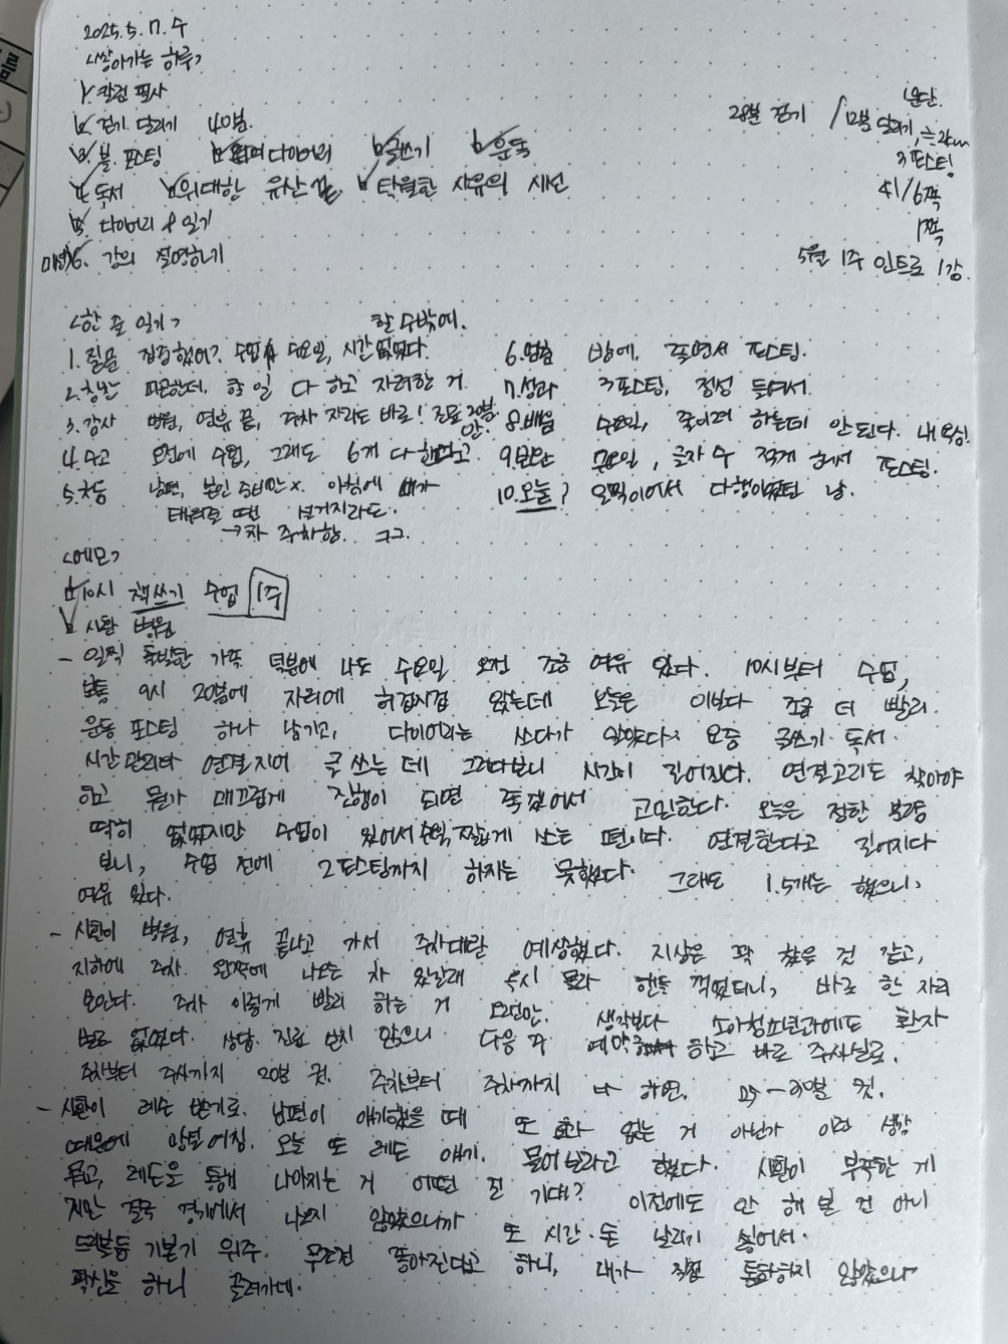 2025. 5. 7. 수
<쌓아가는 하루>
1. 칼럼 필사
2. 걷기 달리기 40분. 28분 걷기 / 12분 달리기, ≒2km
3. 블. 포스팅 다이어리 글쓰기 운동 3포스팅
4. 독서 위대한 유산 끝, 탁월한 사유의 시선 41/6쪽
5. 다이어리 & 일기 1쪽
6. 강의 촬영하기 5월 1주 인트로 1강.
<한 줄 일기> 할 수밖에.
1. 질문 집중했어? 수업 수요일, 시간 없었다.
2. 칭찬 피곤한데, 할 일 다 하고 자려한 거
3. 감사 병원, 연휴 끝, 주차 자리도 바로! 진료 20분만.
4. 수고 오전에 수업, 그래도 6개 다 한다고
5. 남편, 본인 준비만 x. 아침에 내가
태워줄 땐
→ 차 주차함. ㅋㅋ.
6. 멈춤 밤에. 졸면서 포스팅.
7. 성과 3포스팅, 정성 들여서.
8. 배움 수요일, 줄이려 하는데 안 된다. 내 욕심!
9. 수요일, 글자 수 적게 해서 포스팅.
10. 오늘? 오픽이어서 다행이었던 날.
<메모>
10시 책쓰기 수업 1주
시환 병원
- 일찍 출발한 가족 덕분에 나도 수요일 오전 조금 여유 있다. 10시부터 수업,
보통 9시 20분에 자리에 허겁지겁 앉는데 오늘은 이보다 조금 더 빨리.
운동 포스팅 하나 남기고, 다이어리는 쓰다가 말았다. 요즘 글쓰기·독서
시간 관리다 연결지어 글 쓰는 데 그러다보니 시간이 길어진다. 연결고리도 찾아야
하고 뭔가 매끄럽게 진행이 되면 좋겠어서 고민한다. 오늘은 정한 분량
딱히 없었지만 수업이 있어서 수욕 짧게 쓰는 편이다. 연결한다고 길어지다
보니, 수업 전에 2포스팅까지 하지는 못했다. 그래도 1.5개는 했으니,
여유 있다.
- 시환이 병원, 연휴 끝나고 가서 주차대란 예상했다. 지상은 꽉 찼을 것 같고,
지하에 주차. 왼쪽에 나오는 차 있길래 혹시 몰라 핸들 꺾었더니, 바로 한 자리
보인다. 주차 이렇게 빨리 하는 거 오랜만. 생각보다 소아청소년과에도 환자
별로 없었다. 상담. 진료 받지 않으니 다음 주 예약 하고 바로 주사실로.
주차부터 주사까지 20분 컷. 주차부터 주차까지
- 시환이 레슨 받기로. 남편이 얘기했을 때 또 효과 없는 거 아닌가 이런 생각
때문에 망설여짐. 오늘 또 레슨 얘기. 물어보라고 했다. 시환이 부족한 게
뭐고, 레슨을 통해 나아지는 거 어떤 걸 기대? 이전에도 안 해 본 건 아니
지만 결국 경기에서 나오지 않았으니까 또 시간·돈 날리기 싫어서.
드리블등 기본기 위주. 무조건 좋아진다고 하니, 내가 직접 통화하지 않았으나
확신을 하니 끌려가네.